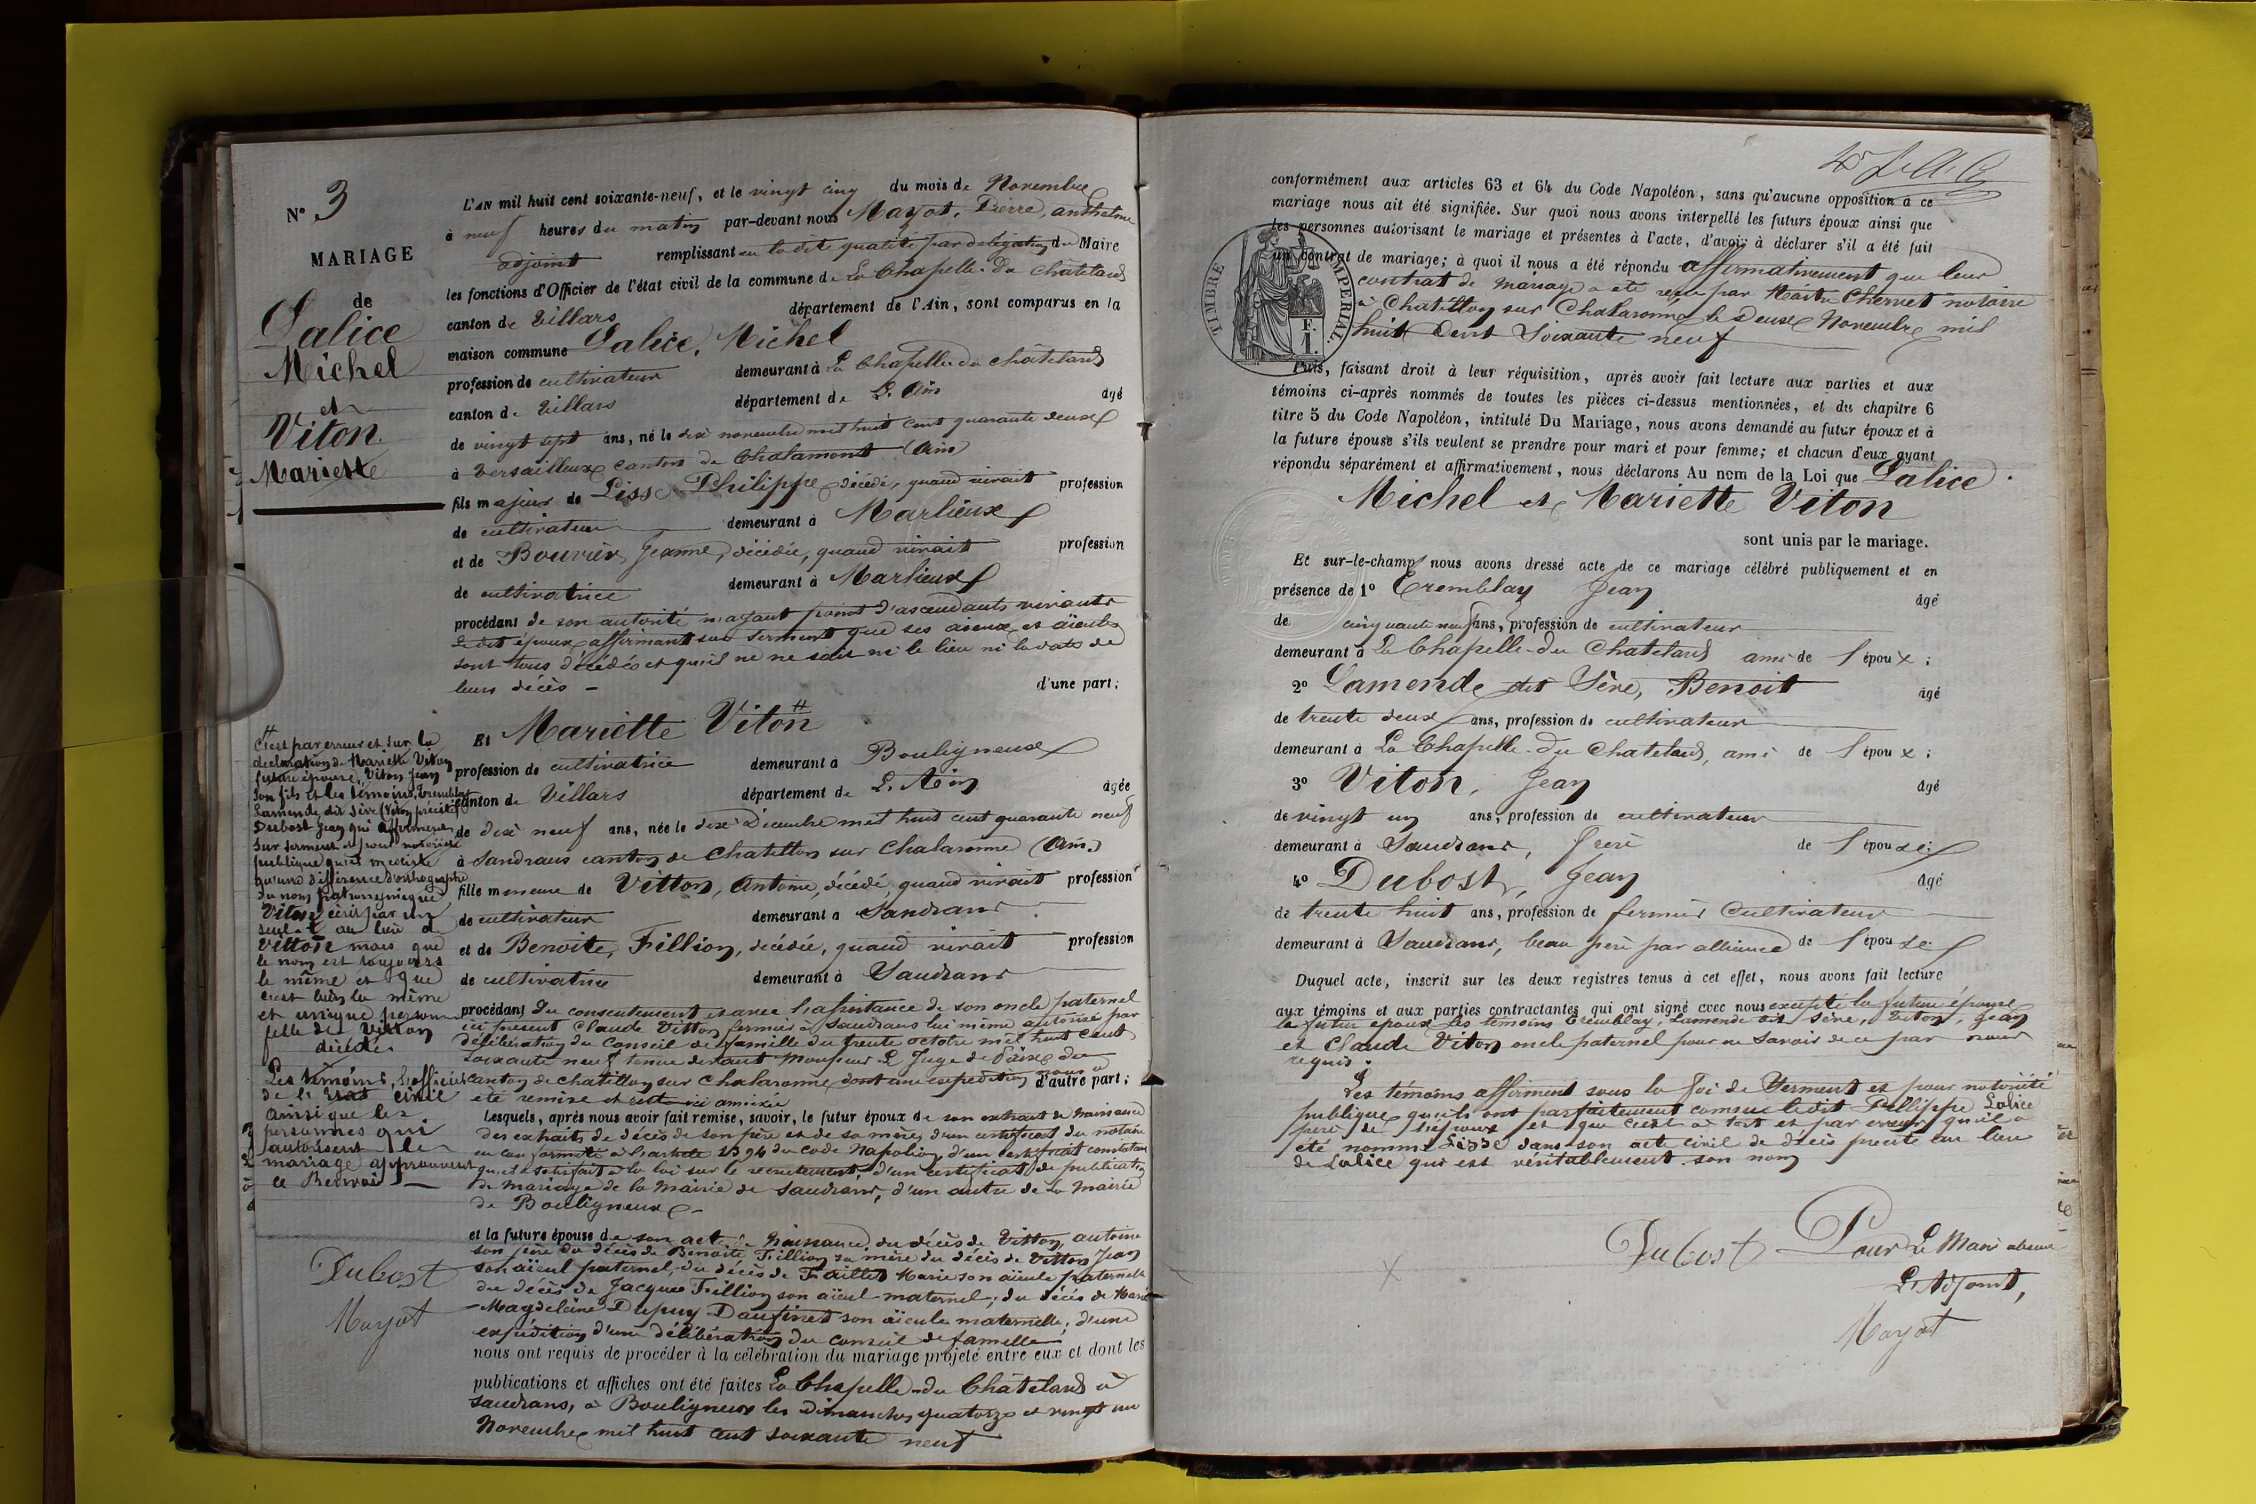 N° 3
MARIAGE
de
Lalice
Michel
et
Viton
Mariette
L'AN mil huit cent soixante-neuf, et le vingt cinq du mois de Novembre
à neuf heures du matin par-devant nous Mayot, Pierre, anthelme
adjoint remplissant en la dite qualité par délégation du Maire
les fonctions d'Officier de l'état civil de la commune de La Chapelle-du Chatelard
canton de Villars département de l'Ain, sont comparus en la
maison commune Lalice, Michel
profession de cultivateur demeurant à La Chapelle du Châtelard
canton de Villars département de L'Ain âgé
de vingt sept ans, né le dix novembre mil huit cent quarante deux
à Versailleux canton de Chalamont (Ain)
fils majeur de Lisse Philippe décédé, quand vivait profession
de cultivateur demeurant à Marlieux
et de Bouvier, Jeanne, décédée, quand vivait profession
de cultivatrice demeurant à Marlieux
procédant de son autorité n'ayant point d'ascendants vivants
Le dit époux affirmant sur serment que ses aïeux et aïeules
sont tous décédés et qu'il ne ne sait ni le lieu ni la date de
leurs décès - d'une part;
Et Mariette Viton #
profession de cultivatrice demeurant à Bouligneux
canton de Villars département de L'Ain agée
de dix neuf ans, née le dix Décembre mil huit cent quarante neuf
à Sandrans canton de Chatillon sur Chalaronne (Ain)
fille mineure de Vitton, Antoine, décédé, quand vivait profession
de cultivateur demeurant à Sandrans
et de Benoite, Fillion, décédée, quand vivait profession
de cultivatrice demeurant à Sandrans
procédant Du consentement et avec l'assistance de son oncle paternel
ici présent Claude Vitton fermier à Sandrans lui même autorisé par
délibération du Conseil de famille du trente octobre mil huit cent
soixante neuf tenue devant Monsieur Le Juge de Paix du
canton de Chatillon sur Chalaronne dont une expédition nous a
été remise et reste ici annexée d'autre part;
# C'est par erreur et sur la
déclaration de Mariette Viton
future épouse, Viton Jean
son fils et les témoins, Tremblay
Lamende dit Sève (Viton précité)
Dubost Jean qui affirment
sur serment et pour notoriété
publique qu'il n'existe
qu'une différence d'orthographe
du nom patronymique
Viton écrit par un
seul t au lieu de
Vitton mais que
le nom est toujours
le même et que
c'est bien la même
et unique personne
fille de Vitton
décédé.
Les témoins, l'officier
de l'état civil
ainsi que les
personnes qui
autorisent le
mariage approuvent
ce Renvoi
Dubost
Mayot
Lesquels, après nous avoir fait remise, savoir, le futur époux de son extrait de naissance
des extraits de décès de son père et de sa mère, d'un certificat du notaire
en conformité à l'article 1394 du code Napoléon, d'un certificat constatant
qu'il a satisfait à la loi sur le recrutement, d'un certificat de publication
de mariage de la Mairie de Sandrans, d'un autre de la Mairie
de Bouligneux -
et la future épouse de son acte de Naissance, du décès de Vitton, antoine
son père du décès de Benoite Fillion sa mère du décès de Vitton Jean
son aïeul paternel, du décès de Faillet Marie son aïeule paternelle
du décès de Jacques Fillion son aïeul maternel, du décès de Marie
-Magdeleine Dupuy Daufinet son aïeule maternelle, d'une
expédition d'une délibération du conseil de famille
nous ont requis de procéder à la célébration du mariage projeté entre eux et dont les
publications et affiches ont été faites La Chapelle-du Châtelard à
Sandrans, à Bouligneux les Dimanches quatorze et vingt un
Novembre mil huit cent soixante neuf
conformément aux articles 63 et 64 du Code Napoléon, sans qu'aucune opposition à ce
mariage nous ait été signifiée. Sur quoi nous avons interpellé les futurs époux ainsi que
les personnes autorisant le mariage et présentes à l'acte, d'avoir à déclarer s'il a été fait
un contrat de mariage; à quoi il nous a été répondu affirmativement que leur
contrat de mariage a été reçu par Maître Chernet notaire
à Chatillon sur Chalaronne le Deux Novembre mil
huit Cent Soixante neuf
TIMBRE IMPERIAL
Puis, faisant droit à leur réquisition, après avoir fait lecture aux parties et aux
témoins ci-après nommés de toutes les pièces ci-dessus mentionnées, et du chapitre 6
titre 5 du Code Napoléon, intitulé Du Mariage, nous avons demandé au futur époux et à
la future épouse s'ils veulent se prendre pour mari et pour femme; et chacun d'eux ayant
répondu séparément et affirmativement, nous déclarons Au nom de la Loi que Lalice
Michel et Mariette Viton
sont unis par le mariage.
Et sur-le-champ nous avons dressé acte de ce mariage célébré publiquement et en
présence de 1° Tremblay Jean âgé
de cinquante neuf ans, profession de cultivateur
demeurant à La Chapelle-du Chatelard ami de l'époux;
2° Lamende dit Sève, Benoit âgé
de trente deux ans, profession de cultivateur
demeurant à La Chapelle-du Chatelard, ami de l'époux;
3° Viton, Jean âgé
de vingt un ans, profession de cultivateur
demeurant à Sandrans, frère de l'épouse;
4° Dubost, Jean âgé
de trente huit ans, profession de fermier Cultivateur
demeurant à Sandrans, beau père par alliance de l'épouse
Duquel acte, inscrit sur les deux registres tenus à cet effet, nous avons fait lecture
aux témoins et aux parties contractantes qui ont signé avec nous excepté la future épouse
le futur époux les témoins Tremblay, Lamende dit Sève, Viton, Jean
et Claude Viton oncle paternel pour ne savoir de ce par nous
requis.
Les témoins affirment sous la foi de Serment et pour notoriété
publique qu'ils ont parfaitement connu ledit Phillippe Lalice
père de l'époux et que c'est à tort et par erreur qu'il a
été nommé Lisse dans son acte civil de décès précité au lieu
de Lalice qui est véritablement son nom
Dubost Pour Le Maire absent
L'Adjoint,
Mayot